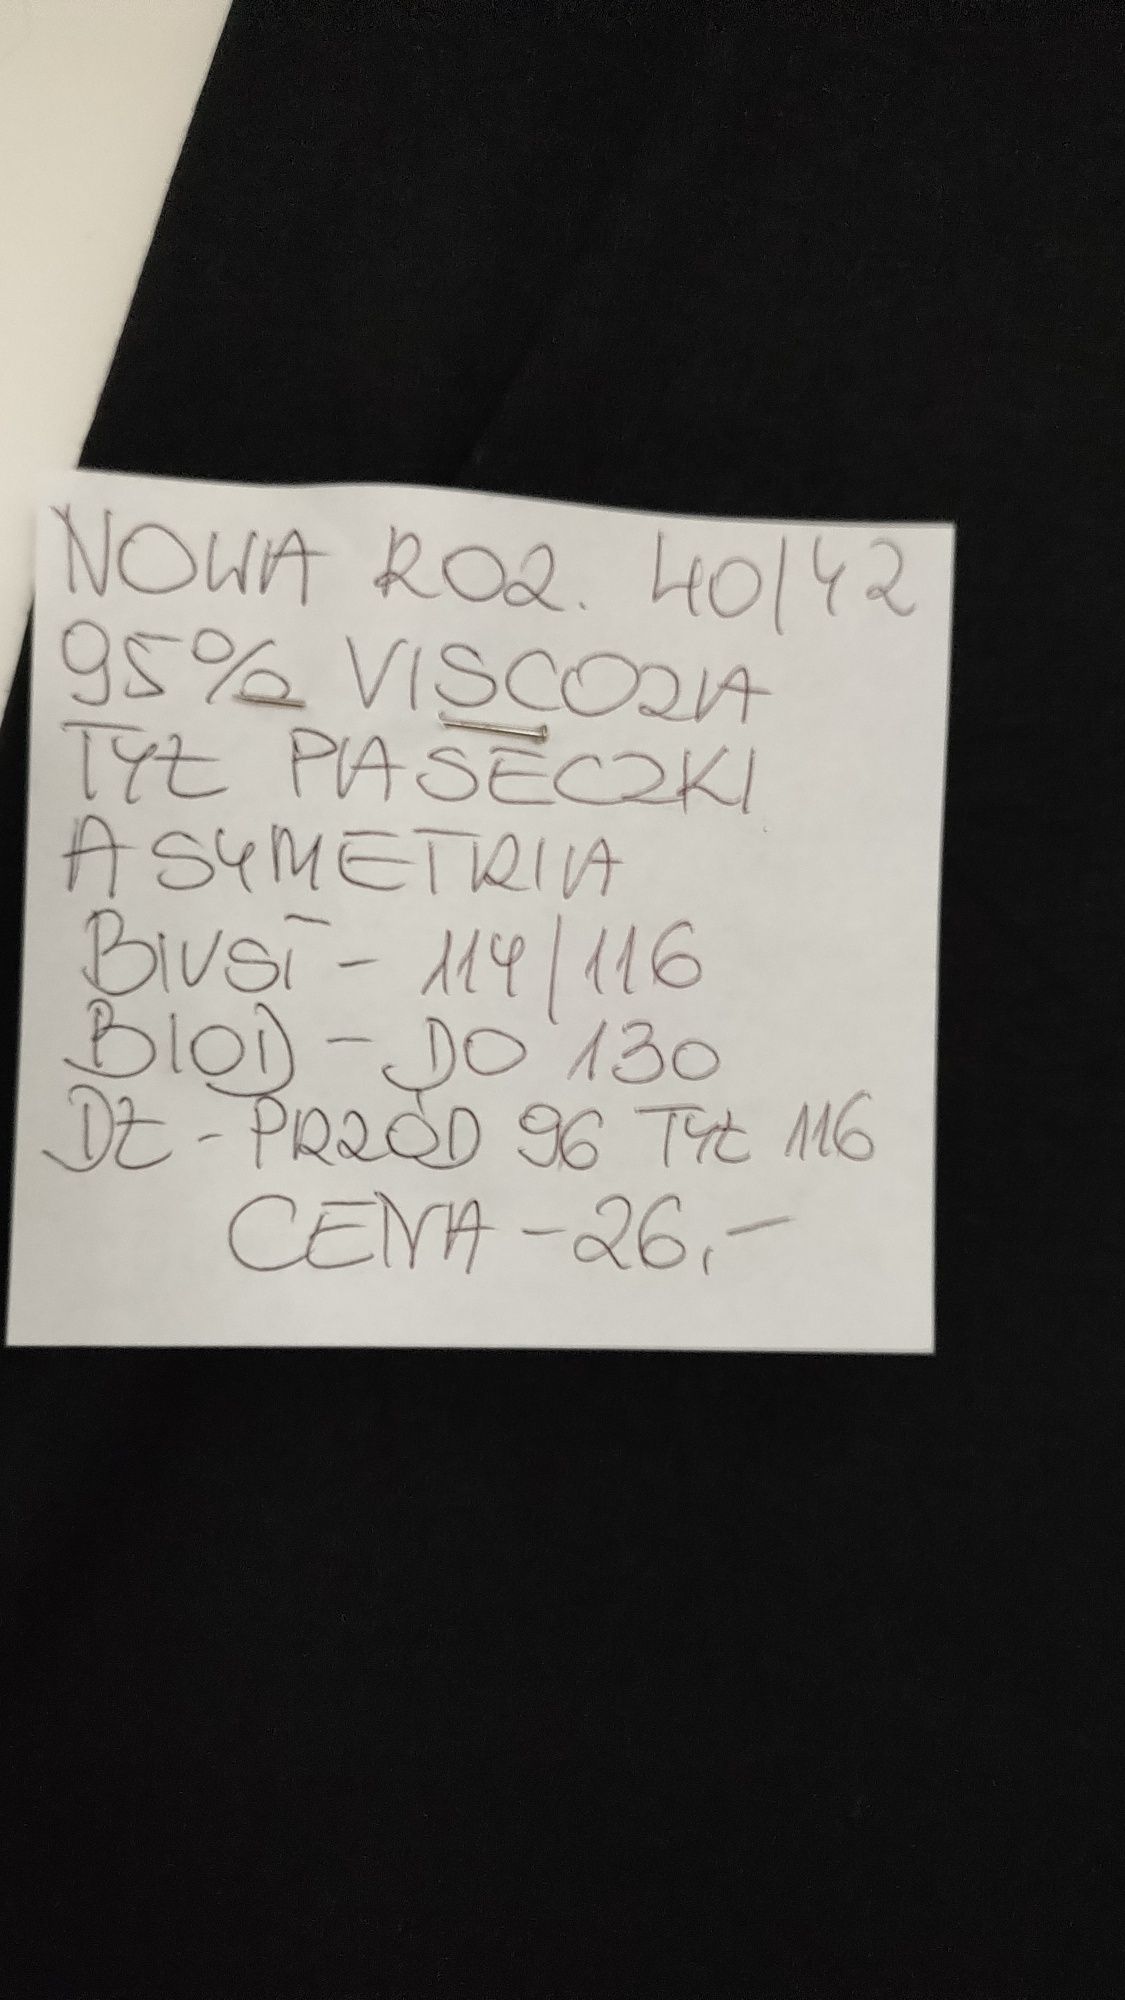 NOWA ROZ. 40/42
95% VISCOZA
TYŁ PIASECZKI
ASYMETRIA
BIUST - 114/116
BIOD - DO 130
DŁ - PRZÓD 96 TYŁ 116
CENA - 26,-